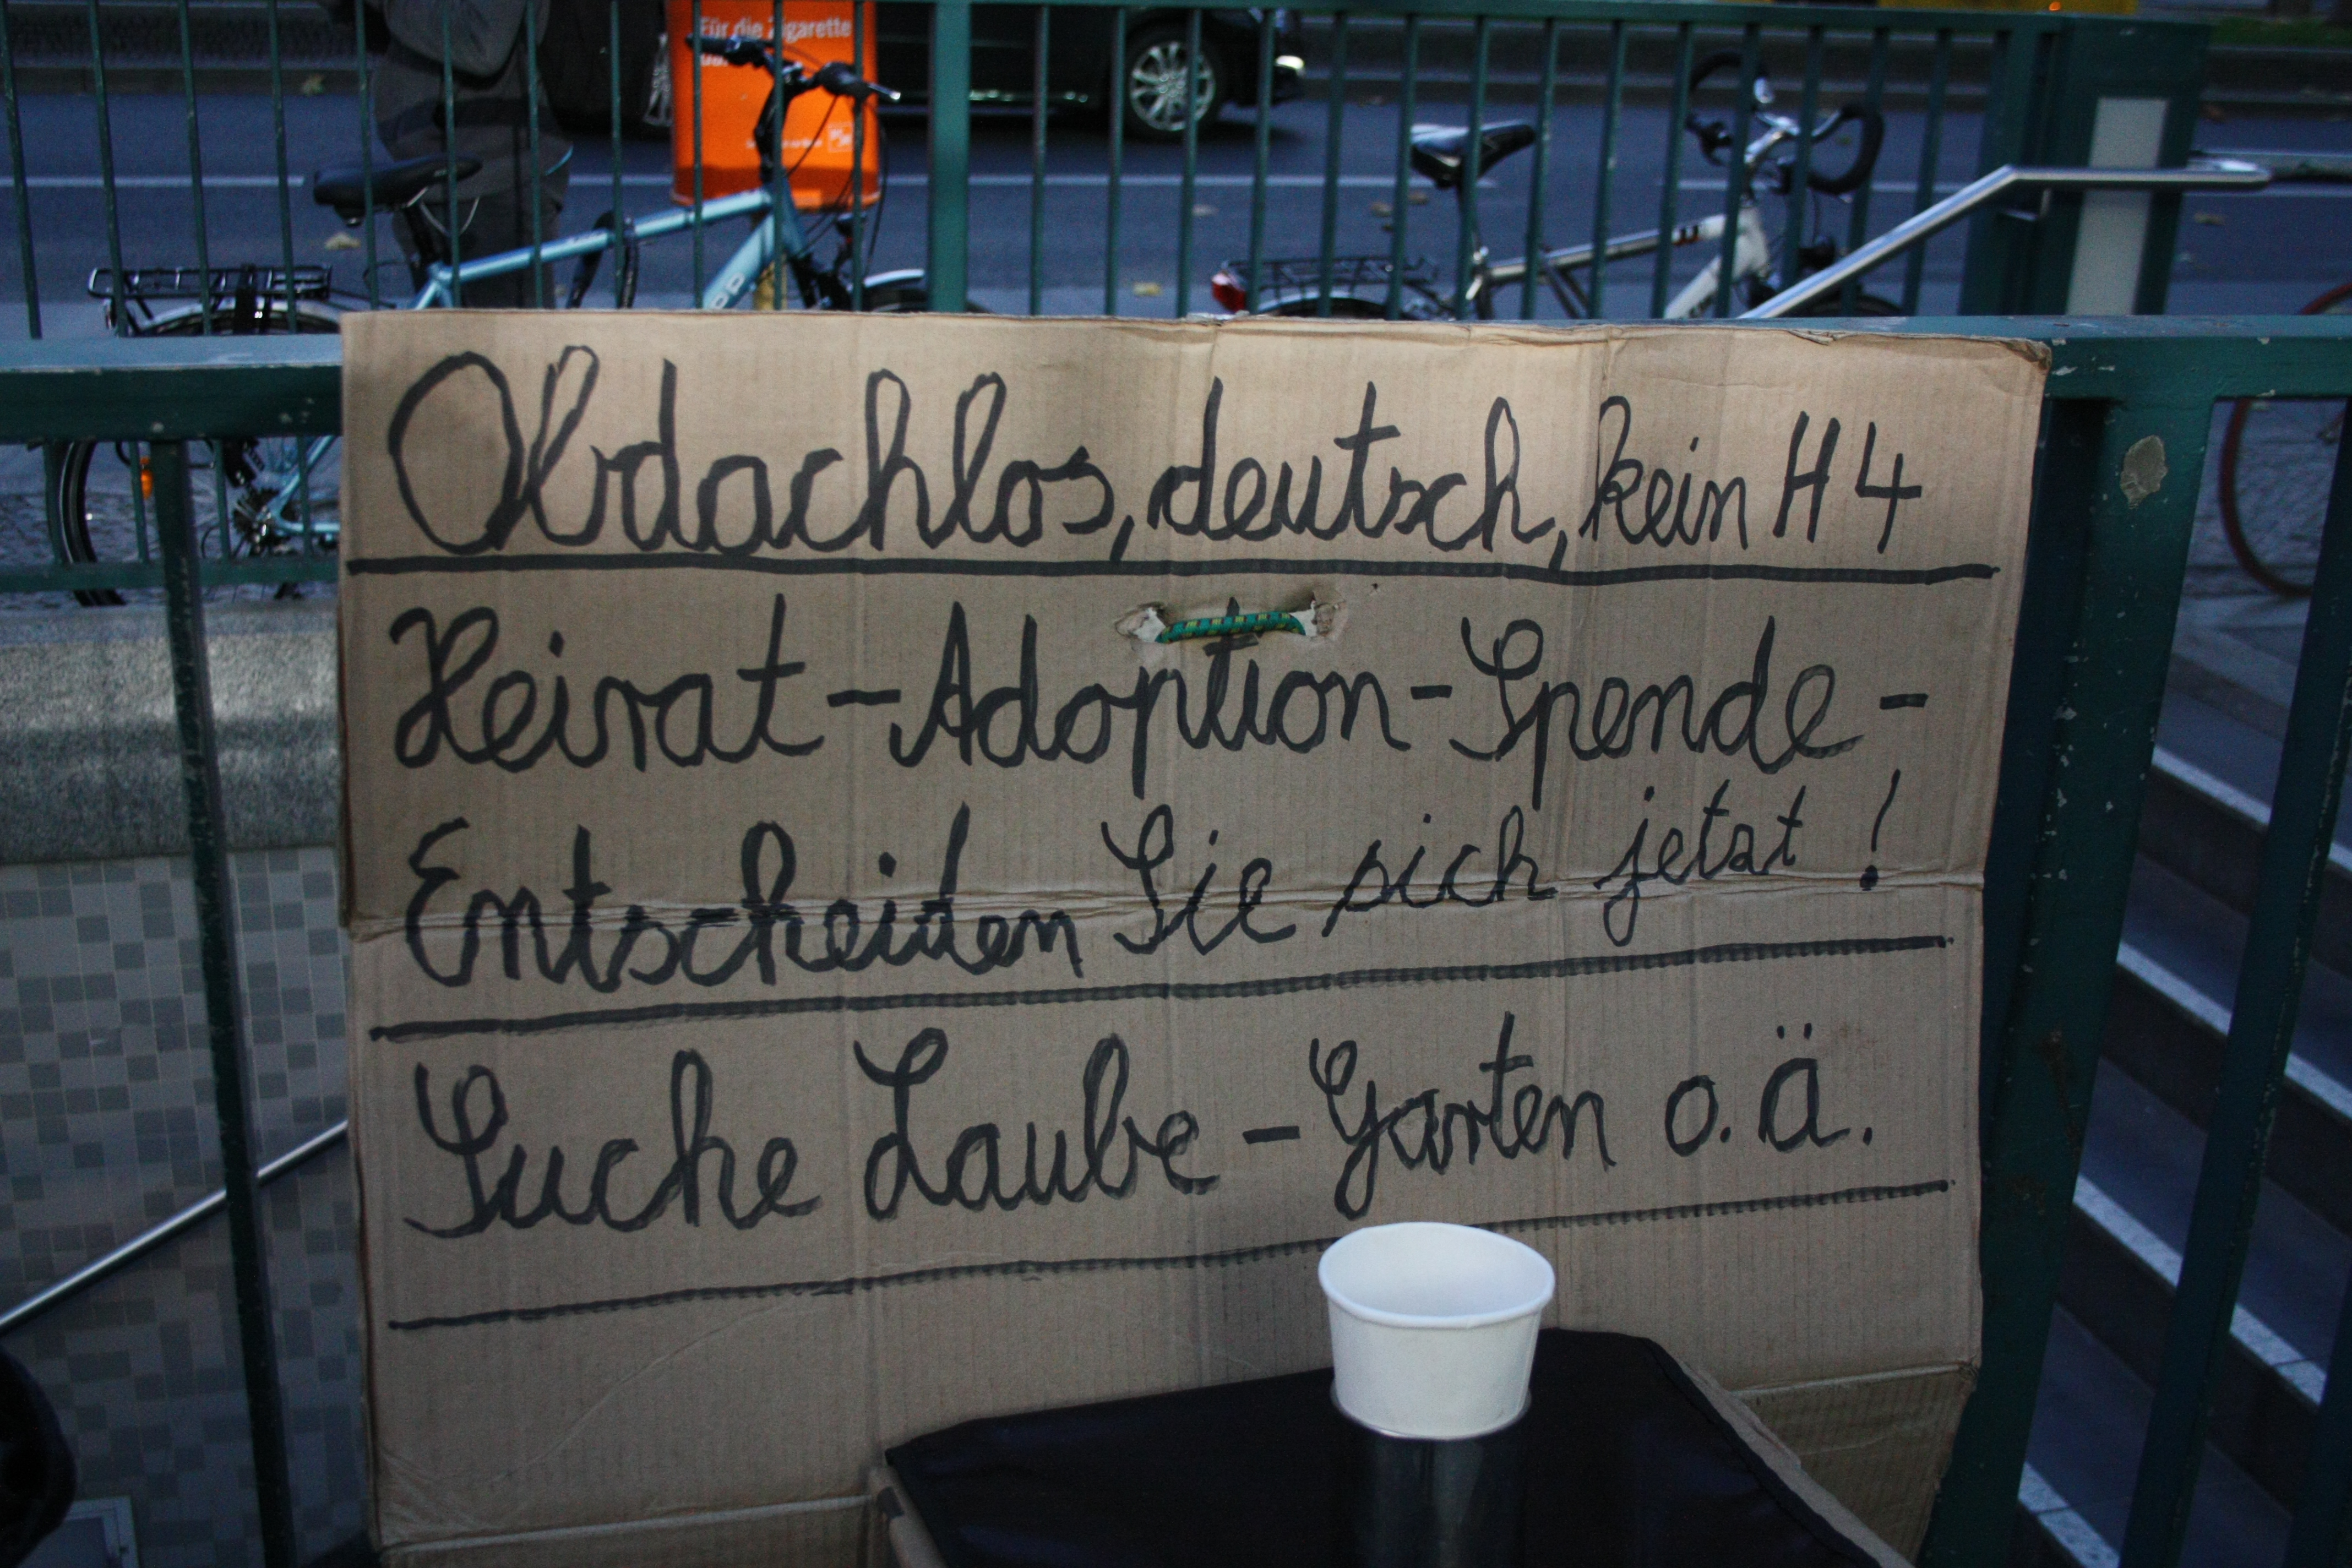 Für die Zigarette
Obdachlos, deutsch, kein H4
Heirat-Adoption-Spende-
Entscheiden Sie sich jetzt!
Suche Laube-Garten o.ä.